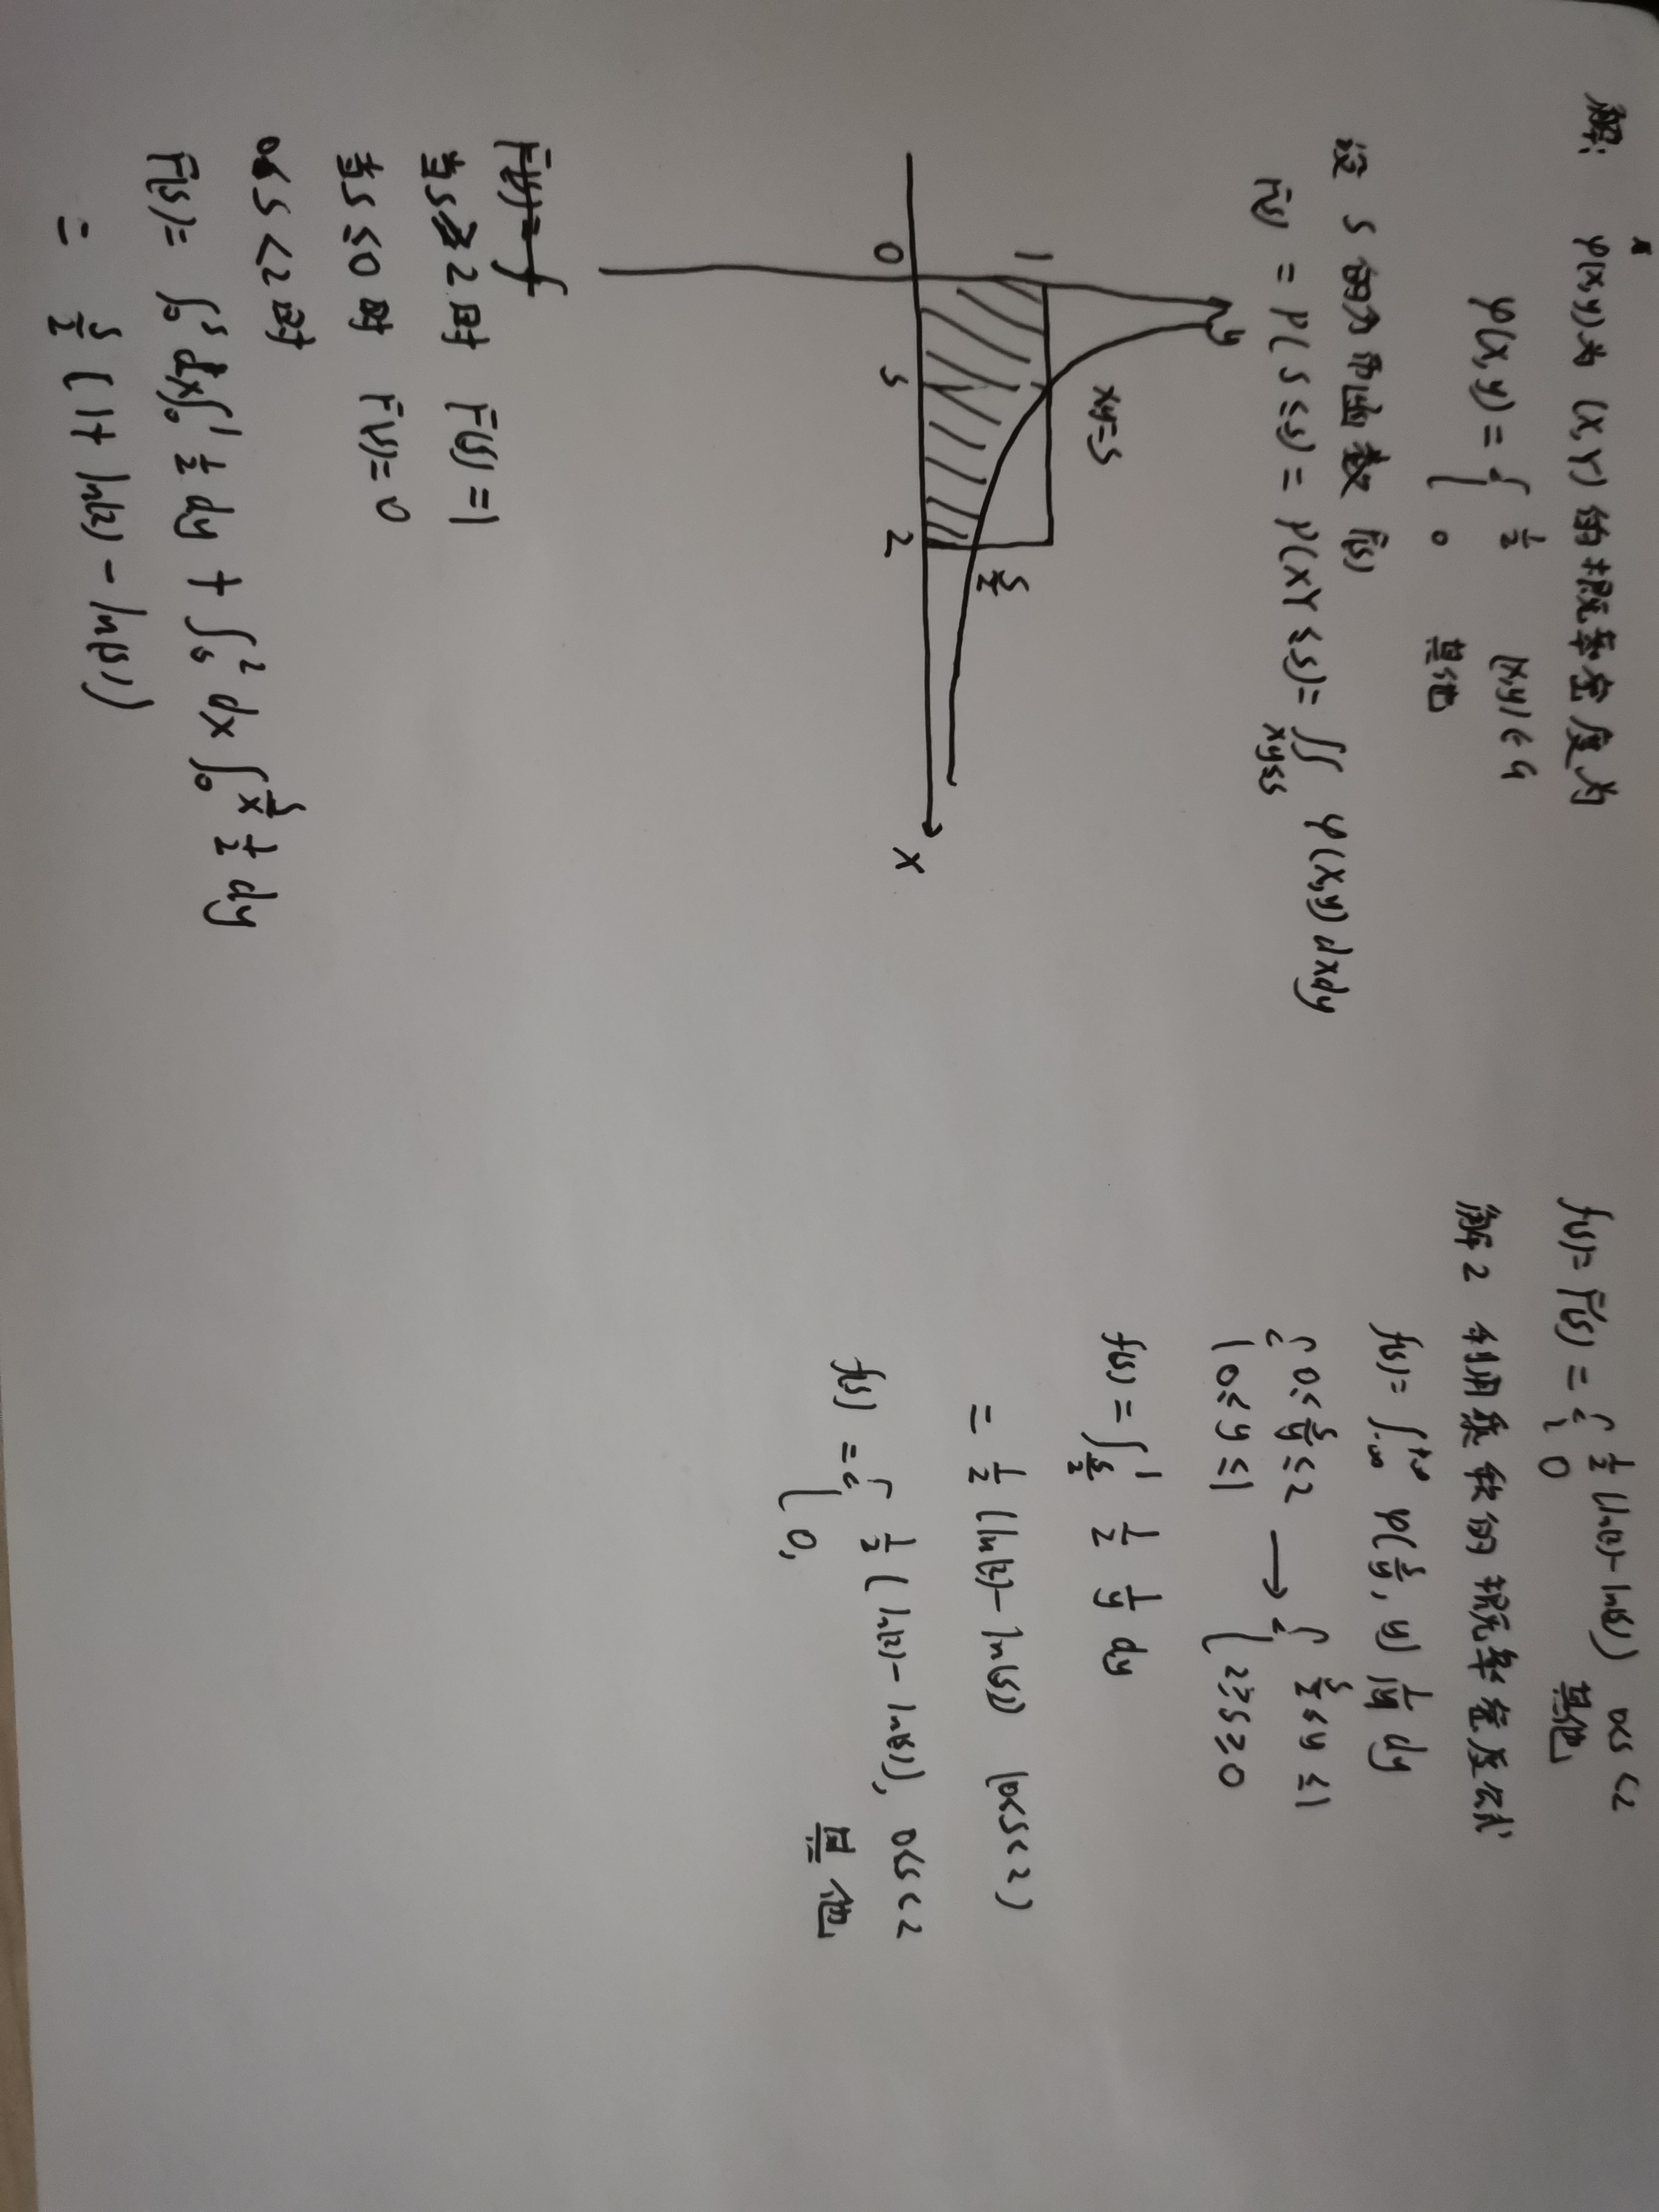 解: φ(x,y)为 (X,Y) 的概率密度为
φ(x,y) = { 1/2 (x,y)∈G
0 其他
设 S 的分布函数 F(s)
F(s) = P(S≤s) = P(XY≤s) = ∬ φ(x,y)dxdy
xy≤s
y
1
xy=s
s/2
0 s 2
x
当 s≥2时 F(s)=1
当s≤0时 F(s)=0
0<s<2时
F(s)= ∫₀ˢ dx∫₀¹ 1/2 dy + ∫ₛ² dx ∫₀^(s/x) 1/2 dy
= s/2 (1+ ln(2) - ln(s))
f(s)= F'(s) = { 1/2 (ln(2)-ln(s)) 0<s<2
0 其他
解2 利用乘积的概率密度公式
f(s)= ∫_{-∞}^{+∞} φ(s/y, y) 1/|y| dy
{ 0≤ s/y ≤2 → { s/2 ≤y≤1
0≤y≤1 2≥s≥0
f(s) = ∫_{s/2}^1 1/2 1/y dy
= 1/2 (ln(2)-ln(s)) (0<s<2)
f(s) = { 1/2 (ln(2)-ln(s)), 0<s<2
0, 其他